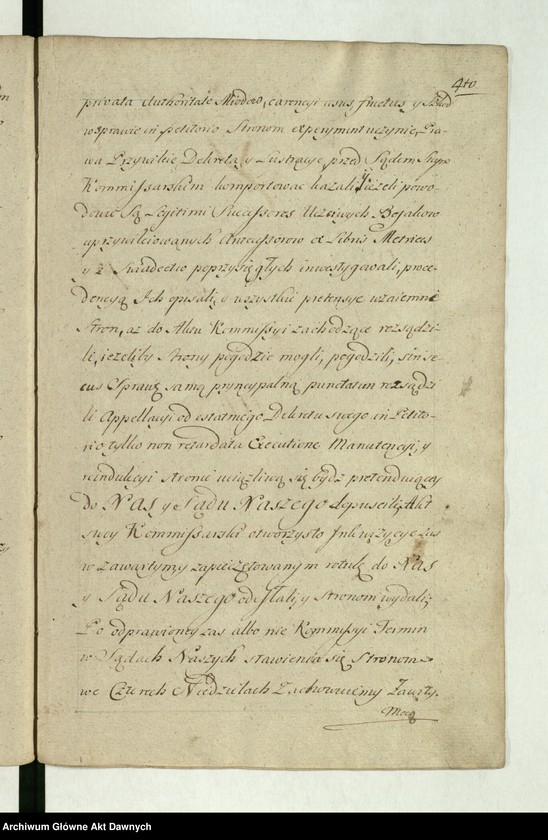 410
privata Authoritate Miodow, carencyi usus, fructus y Szkod
w sprawie in Petitorio Stronom experyment uczynic, Pra-
wa Przywileie Dekreta y Lustracye przed Sądem Swym
Kommissarskim komportować kazali, y ieżeli powo-
dowie Są Legitimi Successores Uczciwych Boiakow
uprzywileiowanych Antecessorow ex Libris Metrices
y z Swiadectw poprzysięgłych inwestygowali, proce-
dencyą Ich opisali, y wszystkie pretensye wzaiemne
Stron, aż do Aktu Kommissyi zachodzące rozsądzi-
li, ieżeliby Strony pogodzić mogli, pogodzili, sin se-
cus Sprawę samą pryncypalną punctatim rozsądzi
li Appellacyi od ostatniego Dekretu swego in Petito-
rio tylko non retardata Executione Manutencyi, y
reindukcyi stronie uciążliwą się bydź pretenduiący
do NAS y Sądu Naszego dopuścili, Akt
swoy Kommissarski otworzysto Inkwizycye zas
w zawartym y zapieczętowanym rotule do NAS
y Sądu Naszego odesłali, y Stronom wydali;
Po odprawioney zas albo nie Kommissyi Termin
w Sądach Naszych stawienia się Stronom
we Czterech Niedzielach Zachowuiemy Zawity.
Mocą
Archiwum Główne Akt Dawnych